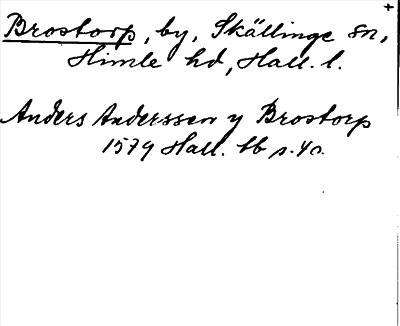 Brostorp, by, Skällinge sn,
Himle hd, Hall. l.
Anders Anderssen y Brostorp
1579 Hall. tb s. 40.